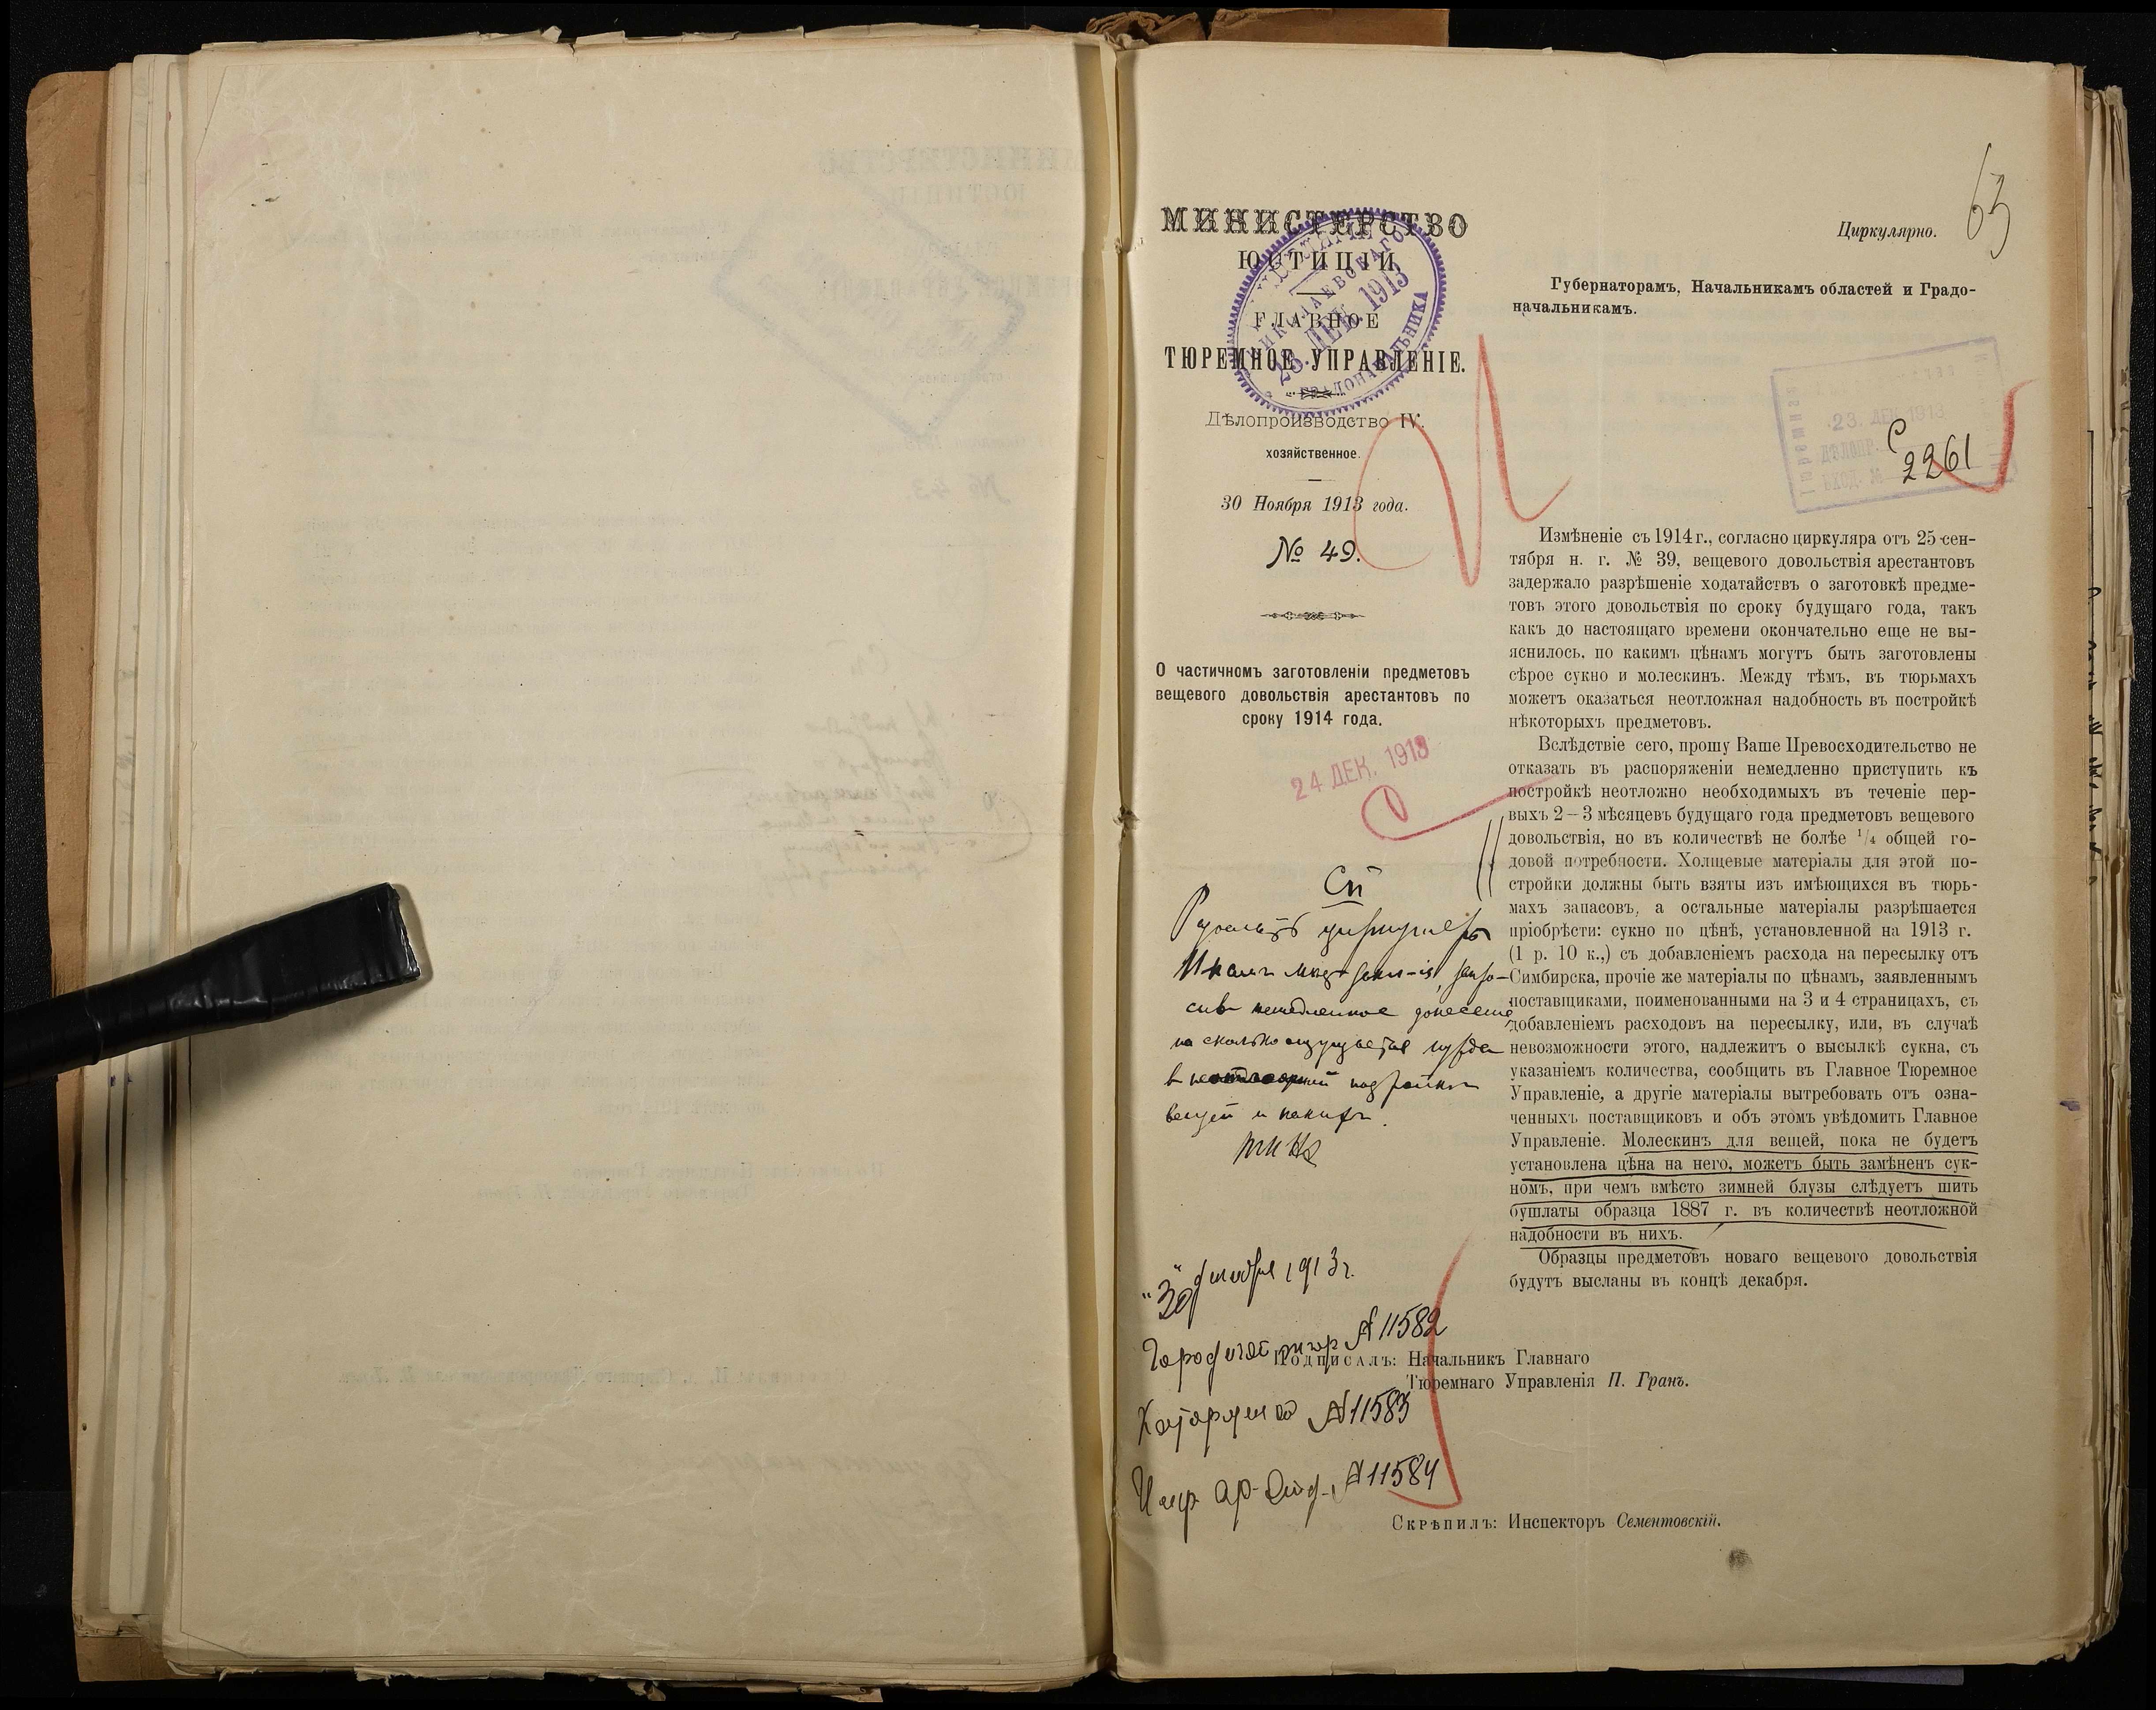 63
Циркулярно.
МИНИСТЕРСТВО
ЮСТИЦІИ
ГЛАВНОЕ
ТЮРЕМНОЕ УПРАВЛЕНІЕ.
НИКОЛАЕВСКАГО
23. ДЕК. 1913
ГРАДОНАЧАЛЬНИКА
Дѣлопроизводство IV.
хозяйственное.
30 Ноября 1913 года.
№ 49.
О частичномъ заготовленіи предметовъ
вещевого довольствія арестантовъ по
сроку 1914 года.
24 ДЕК. 1913
Губернаторамъ, Начальникамъ областей и Градо-
начальникамъ.
23. ДЕК 1913
ДѢЛОПР.
ВХОД. №
2261
Измѣненіе съ 1914 г., согласно циркуляра отъ 25 сен-
тября н. г. № 39, вещевого довольствія арестантовъ
задержало разрѣшеніе ходатайствъ о заготовкѣ предме-
товъ этого довольствія по сроку будущаго года, такъ
какъ до настоящаго времени окончательно еще не вы-
яснилось, по какимъ цѣнамъ могутъ быть заготовлены
сѣрое сукно и молескинъ. Между тѣмъ, въ тюрьмахъ
можетъ оказаться неотложная надобность въ постройкѣ
нѣкоторыхъ предметовъ.
Вслѣдствіе сего, прошу Ваше Превосходительство не
отказать въ распоряженіи немедленно приступить къ
постройкѣ неотложно необходимыхъ въ теченіе пер-
выхъ 2 — 3 мѣсяцевъ будущаго года предметовъ вещевого
довольствія, но въ количествѣ не болѣе 1/4 общей го-
довой потребности. Холщевые матеріалы для этой по-
стройки должны быть взяты изъ имѣющихся въ тюрь-
махъ запасовъ, а остальные матеріалы разрѣшается
пріобрѣсти: сукно по цѣнѣ, установленной на 1913 г.
(1 р. 10 к.,) съ добавленіемъ расхода на пересылку отъ
Симбирска, прочіе же матеріалы по цѣнамъ, заявленнымъ
поставщиками, поименованными на 3 и 4 страницахъ, съ
добавленіемъ расходовъ на пересылку, или, въ случаѣ
невозможности этого, надлежитъ о высылкѣ сукна, съ
указаніемъ количества, сообщить въ Главное Тюремное
Управленіе, а другіе матеріалы вытребовать отъ озна-
ченныхъ поставщиковъ и объ этомъ увѣдомить Главное
Управленіе. Молескинъ для вещей, пока не будетъ
установлена цѣна на него, можетъ быть замѣненъ сук-
номъ, при чемъ вмѣсто зимней блузы слѣдуетъ шить
бушлаты образца 1887 г. въ количествѣ неотложной
надобности въ нихъ.
Образцы предметовъ новаго вещевого довольствія
будутъ высланы въ концѣ декабря.
немедленное донесеніе
на сколько ощущается нужда
вещей и какихъ.
"30" декабря 1913 г.
№ 11582
Каторжной № 11583
№ 11584
Подписалъ: Начальникъ Главнаго
Тюремнаго Управленія П. Гранъ.
Скрѣпилъ: Инспекторъ Сементовскій.